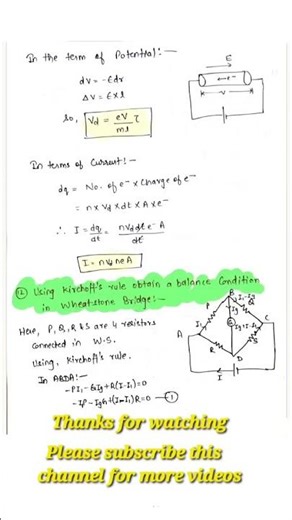 In the term of Potential:-
dv = -Edr
ΔV = E×l
So, Vd = eV/ml τ
E
e-
V
In terms of Current:-
dq = No. of e- × Charge of e-
= n × Vd × dt × A × e-
∴ I = dq/dt = nVd dt e- A/dt
I = nVd neA
(12) Using Kirchoff's rule obtain a balance Condition
in Wheatstone Bridge:-
Here, P, Q, R & S are 4 resistors
Connected in W.S.
Using, Kirchoff's rule.
In ABDA:-
-PI1 - GIg + R(I-I1) = 0
-I1P - IgG + (I-I1)R = 0 - (1)
B
I1-Ig
P
Q
I1
Ig
A
C
G
R
S
D
I
I
Thanks for watching
Please subscribe this
channel for more videos